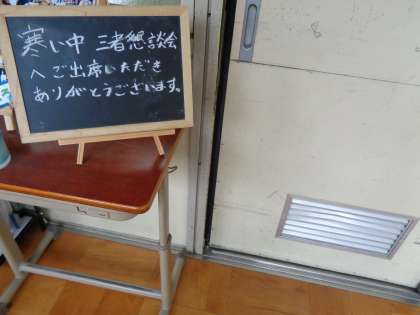 寒い中 三者懇談会
へご出席いただき
ありがとうございます。